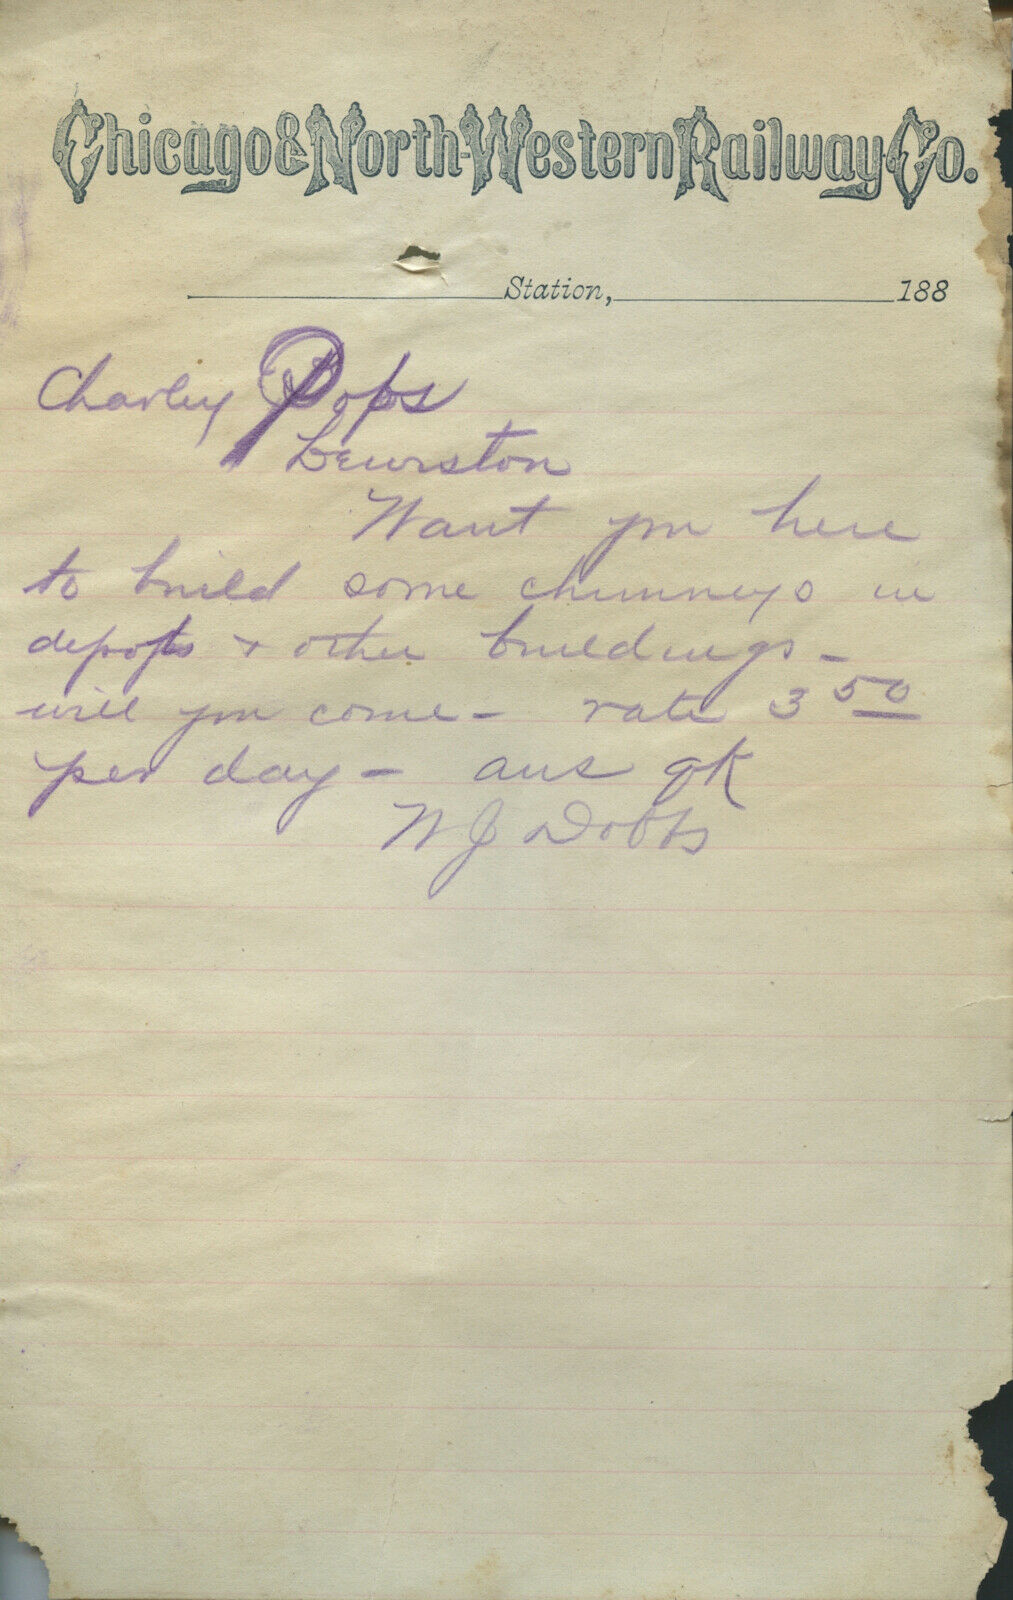 Chicago & North-Western Railway Co.
Station, 188
Charley Pops
Lewiston
Want you here
to build some chimneys in
depots & other buildings -
will you come - rate 3 50
per day - ans qk
W J Dobbs